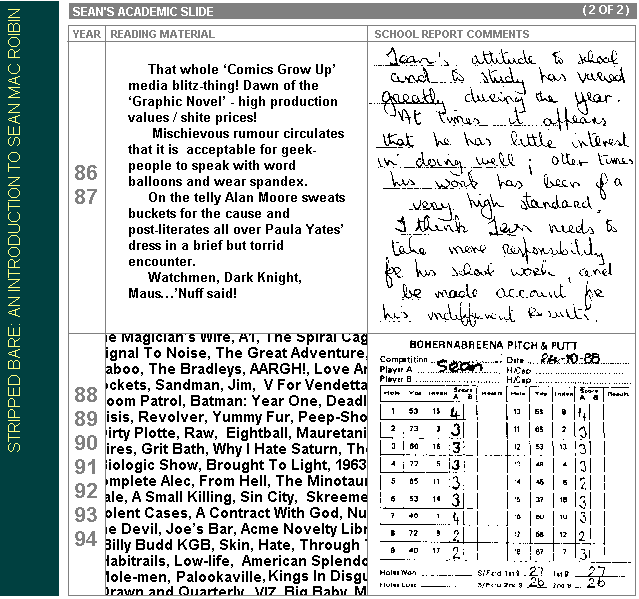 STRIPPED BARE: AN INTRODUCTION TO SEAN MAC ROIBIN
SEAN'S ACADEMIC SLIDE
(2 OF 2)
YEAR
READING MATERIAL
SCHOOL REPORT COMMENTS
86
87
That whole 'Comics Grow Up'
media blitz-thing! Dawn of the
'Graphic Novel' - high production
values / shite prices!
Mischievous rumour circulates
that it is acceptable for geek-
people to speak with word
balloons and wear spandex.
On the telly Alan Moore sweats
buckets for the cause and
post-literates all over Paula Yates'
dress in a brief but torrid
encounter.
Watchmen, Dark Knight,
Maus...'Nuff said!
Sean's attitude to school
and to study has varied
greatly during the year.
At times it appears
that he has little interest
in doing well; other times
his work has been of a
very high standard.
I think Sean needs to
take more responsibility
for his school work, and
be made account for
his indifferent results.
88
89
90
91
92
93
94
e Magician's Wife, A1, The Spiral Cag
ignal To Noise, The Great Adventure,
aboo, The Bradleys, AARGH!, Love Ar
ockets, Sandman, Jim, V For Vendetta
oom Patrol, Batman: Year One, Deadl
isis, Revolver, Yummy Fur, Peep-Sho
irty Plotte, Raw, Eightball, Mauretani
ires, Grit Bath, Why I Hate Saturn, Th
iologic Show, Brought To Light, 1963
omplete Alec, From Hell, The Minotau
ale, A Small Killing, Sin City, Skreeme
olent Cases, A Contract With God, Nu
e Devil, Joe's Bar, Acme Novelty Libr
Billy Budd KGB, Skin, Hate, Through
Habitrails, Low-life, American Splendo
Mole-men, Palookaville, Kings In Disgu
Drawn and Quarterly, VIZ, Big Baby, M
BOHERNABREENA PITCH & PUTT
Competition Date 24-10-88
Player A Sean H/Cap
Player B H/Cap
Hole Yds Index Score A B Result Hole Yds Index Score A B Result
1 53 15 4 10 55 8 4
2 73 3 3 11 65 2 3
3 60 3 12 53 13 3
4 77 5 3 13 4 3
5 65 11 3 14 45 6 2
6 53 14 3 15 37 18 3
7 1 4 16 60 10 3
8 72 9 2 17 12 2
9 40 17 2 18 67 7 3
Holes Won 27 27
Holes Loss 26 26